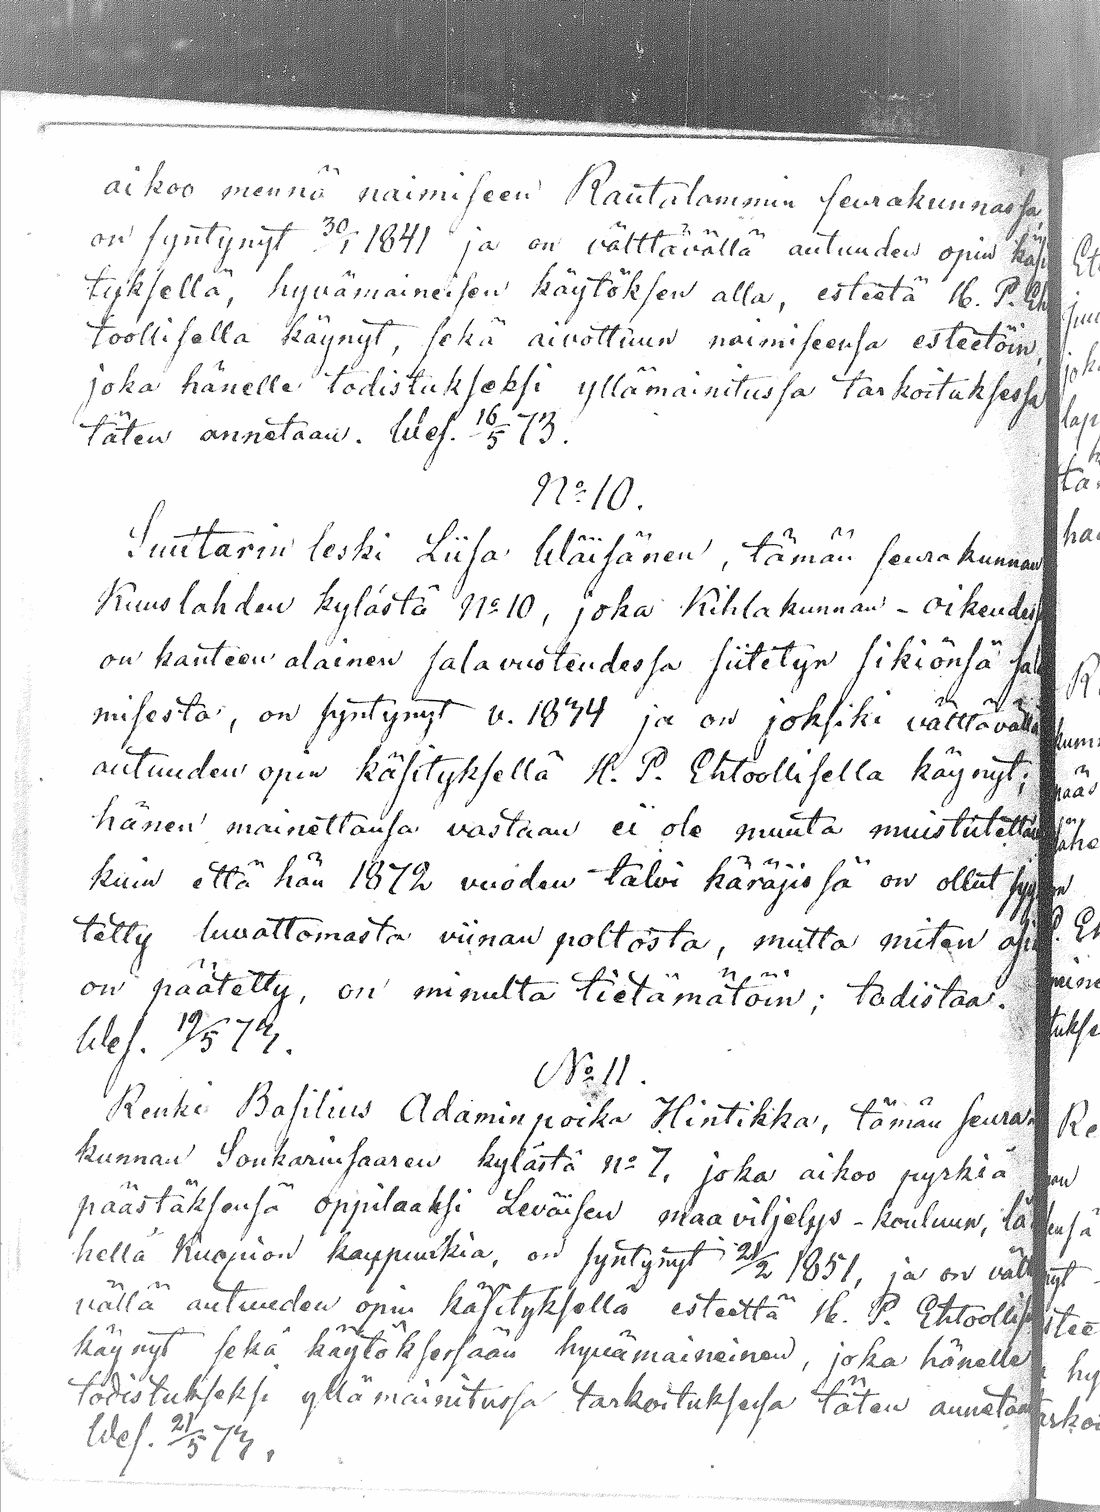 aikoo mennä naimiseen Rautalammin seurakunnassa,
on syntynyt 30/1 1841 ja on välttävällä autuuden opin käsi
tyksellä, hyvämaineisen käytöksen alla, esteetä H. P. Eh
toollisella käynyt, sekä aivottuun naimiseensa esteetöin,
joka hänelle todistukseksi yllämainitussa tarkoituksessa
täten annetaan. Wes. 16/5 73.
No 10.
Suutarin leski Liisa Wäisänen, tämän seurakunnan
Kuuslahden kylästä No 10, joka Kihlakunnan-oikeudessa
on kanteen alainen salavuoteudessa siitetyn sikiönsä sala
misesta, on syntynyt v. 1834 ja on joksiki välttävällä
autuuden opin käsityksellä H. P. Ehtoollisella käynyt;
hänen mainettansa vastaan ei ole muuta muistutettavaa
kuin että hän 1872 vuoden talvi käräjissä on ollut syy
tetty luvattomasta viinan poltosta, mutta miten asia
on päätetty, on minulta tietämätöin; todistaa.
Wes. 19/5 73.
No 11.
Renki Basilius Adaminpoika Hintikka, tämän seura
kunnan Sonkarinsaaren kylästä No 7, joka aikoo pyrkiä
päästäksensä oppilaaksi Leväisen maaviljelys-kouluun, lä
hellä Kuopion kaupunkia, on syntynyt 21/2 1851, ja on vält
vällä autuuden opin käsityksellä esteettä H. P. Ehtoollis
käynyt sekä käytöksessään hyvämaineinen, joka hänelle
todistukseksi yllämainitussa tarkoituksessa täten annetaan
Wes. 21/5 73.